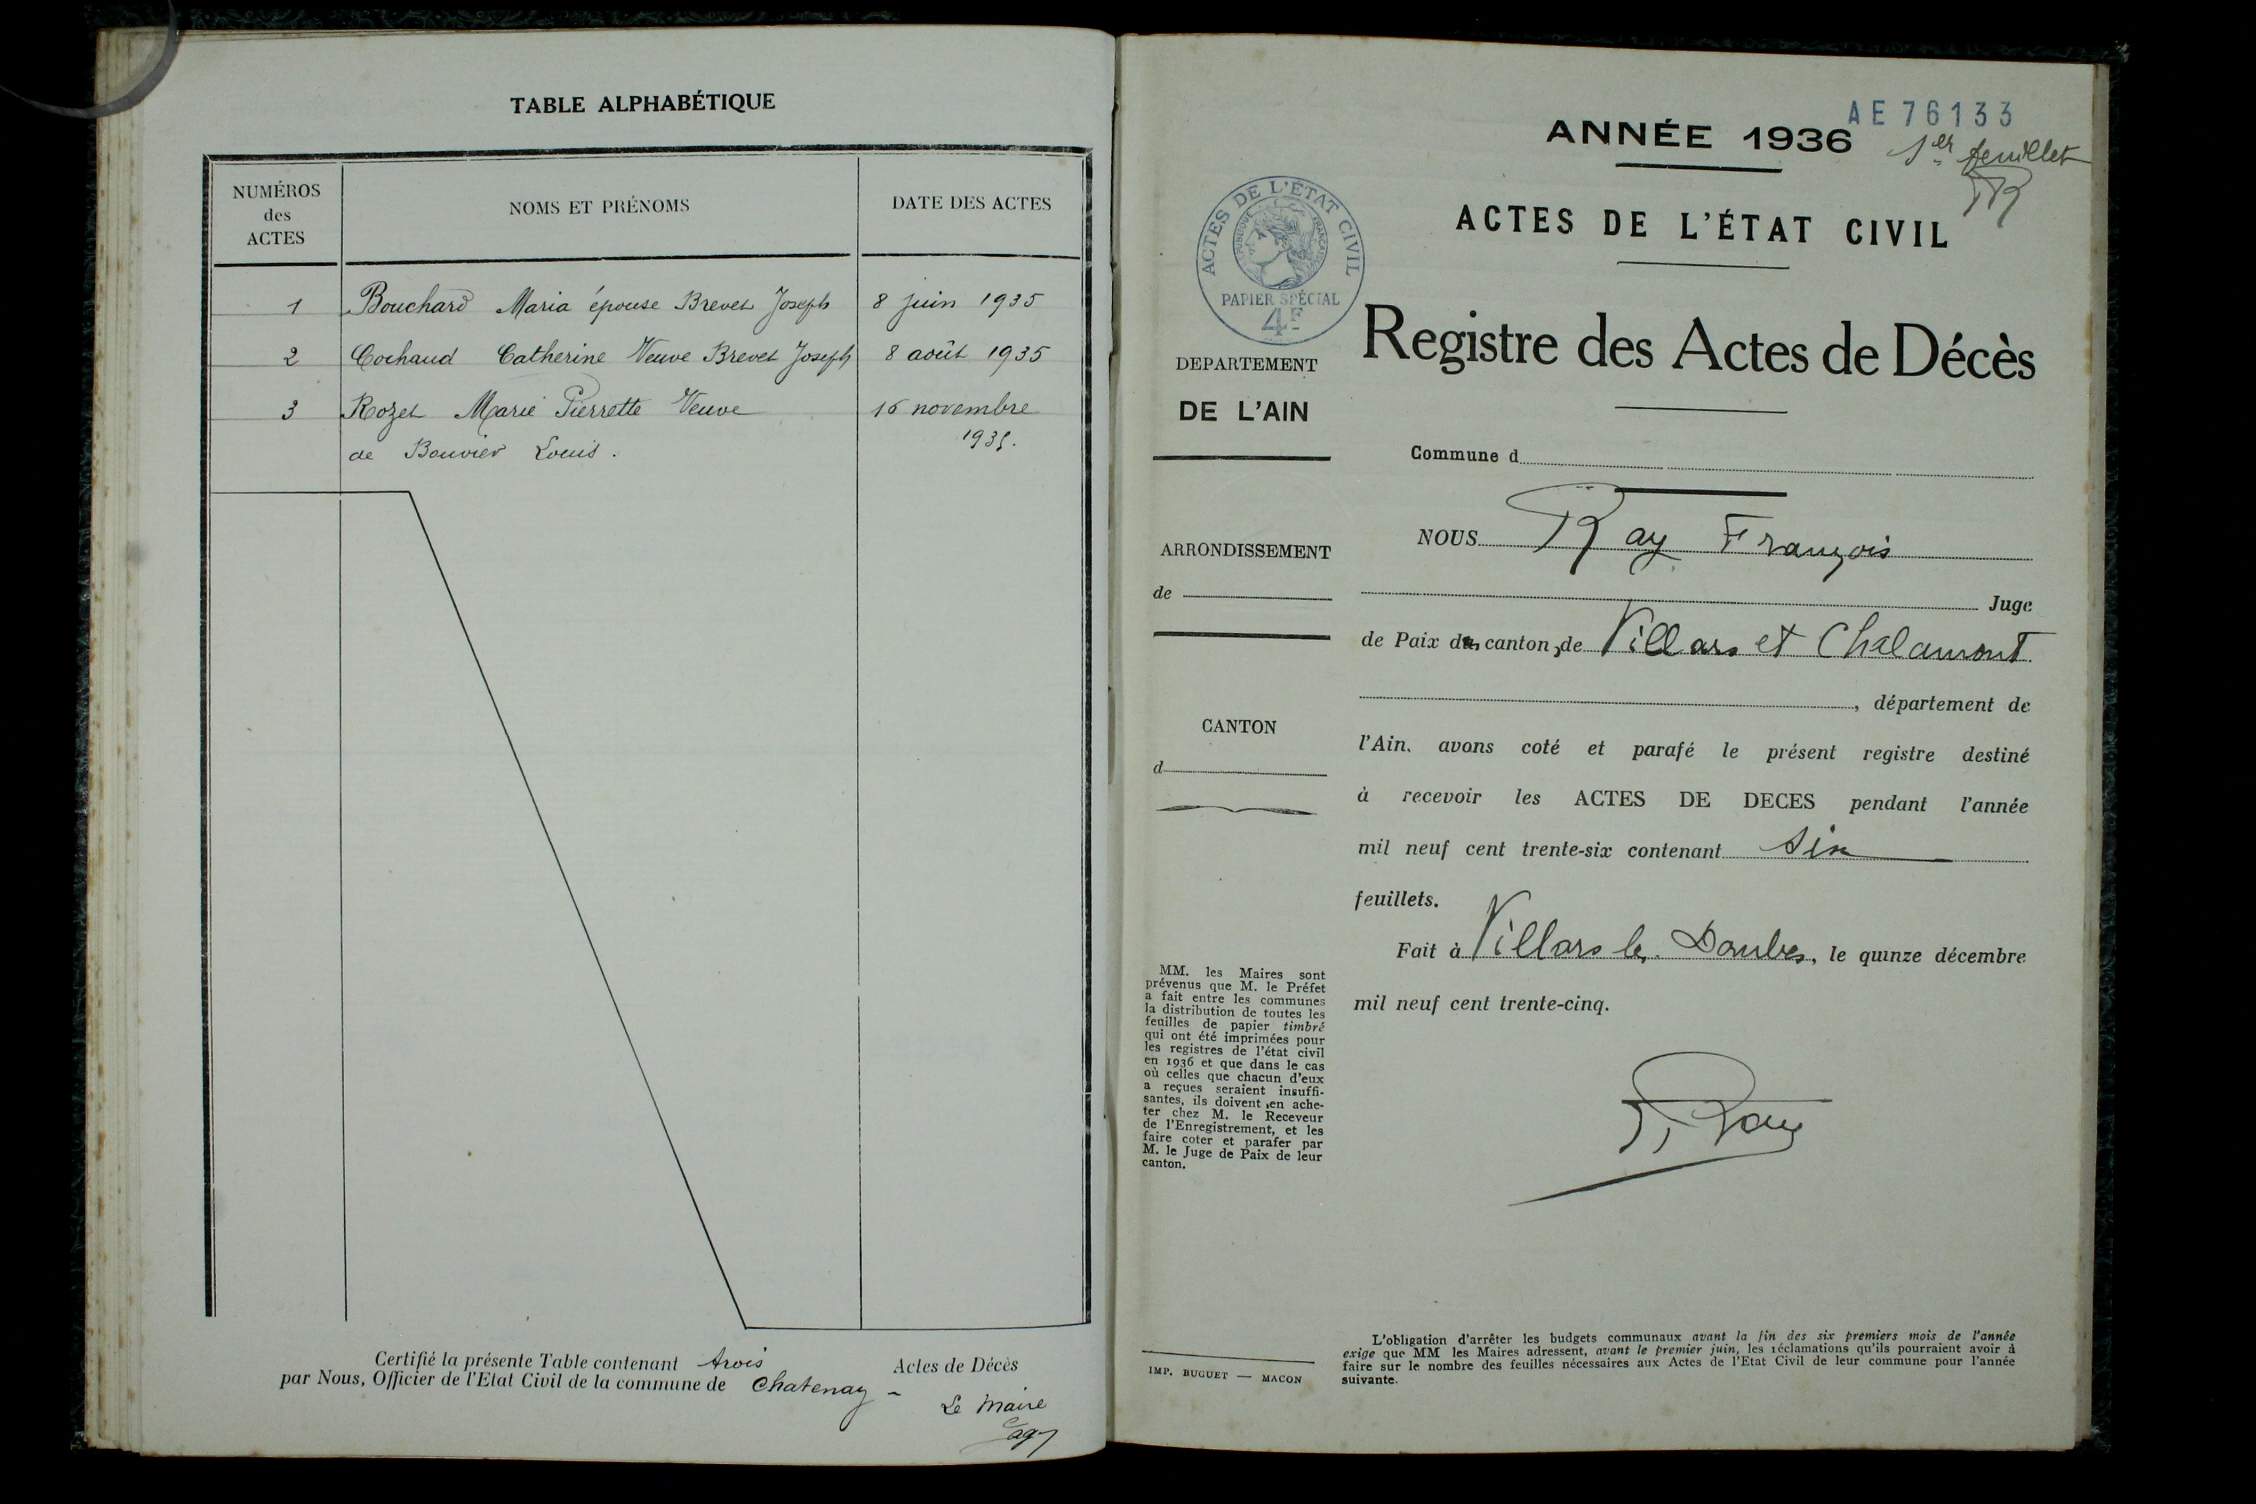 TABLE ALPHABÉTIQUE
NUMÉROS
des
ACTES
NOMS ET PRÉNOMS
DATE DES ACTES
1 Bouchard Maria épouse Brevet Joseph 8 juin 1935
2 Cochaud Catherine Veuve Brevet Joseph 8 août 1935
3 Rozet Marie Pierrette Veuve 16 novembre
de Bouvier Louis. 1935.
Certifié la présente Table contenant trois Actes de Décès
par Nous, Officier de l'Etat Civil de la commune de Chatenay -
Le Maire
AE 76133
ANNÉE 1936
1er feuillet
ACTES DE L'ÉTAT CIVIL
ACTES DE L'ÉTAT CIVIL
RÉPUBLIQUE FRANÇAISE
PAPIER SPÉCIAL
4F
Registre des Actes de Décès
DEPARTEMENT
DE L'AIN
Commune d
NOUS Ray François
ARRONDISSEMENT
de
Juge
de Paix des canton, de Villars et Chalamont
, département de
CANTON
d
l'Ain, avons coté et parafé le présent registre destiné
à recevoir les ACTES DE DECES pendant l'année
mil neuf cent trente-six contenant six
feuillets.
Fait à Villars les Dombes, le quinze décembre
mil neuf cent trente-cinq.
F. Ray
MM. les Maires sont
prévenus que M. le Préfet
a fait entre les communes
la distribution de toutes les
feuilles de papier timbré
qui ont été imprimées pour
les registres de l'état civil
en 1936 et que dans le cas
où celles que chacun d'eux
a reçues seraient insuffi-
santes, ils doivent en ache-
ter chez M. le Receveur
de l'Enregistrement, et les
faire coter et parafer par
M. le Juge de Paix de leur
canton.
IMP. BUGUET — MACON
L'obligation d'arrêter les budgets communaux avant la fin des six premiers mois de l'année
exige que MM les Maires adressent, avant le premier juin, les réclamations qu'ils pourraient avoir à
faire sur le nombre des feuilles nécessaires aux Actes de l'Etat Civil de leur commune pour l'année
suivante.